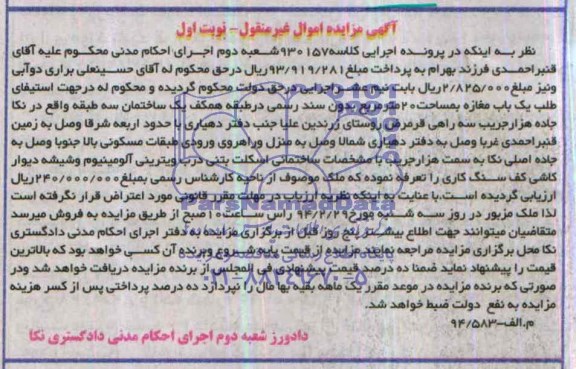 آگهی مزایده اموال غیرمنقول- نوبت اول
نظر به اینکه در پرونده اجرایی کلاسه ۹۳۰۱۵۷ شعبه دوم اجرای احکام مدنی محکوم علیه آقای
قنبراحمدی فرزند بهرام به پرداخت مبلغ ۹۳/۹۱۹/۲۸۱ ریال درحق محکوم له آقای حسینعلی براری دوآبی
ونیز مبلغ ۲/۸۲۵/۰۰۰ ریال بابت نیم عشر اجرایی درحق دولت محکوم گردیده و محکوم له درجهت استیفای
طلب یک باب مغازه بمساحت ۲۰ مترمربع بدون سند رسمی درطبقه همکف یک ساختمان سه طبقه واقع در نکا
جاده هزارجریب سه راهی قرمرض روستای زرندین علیا جنب دفتر دهیاری با حدود اربعه شرقا وصل به زمین
قنبراحمدی غربا وصل به دفتر دهیاری شمالا وصل به منزل وراهروی ورودی طبقات مسکونی بالا جنوبا وصل به
جاده اصلی نکا به سمت هزارجریب با مشخصات ساختمانی اسکلت بتنی درب ویترینی آلومینیوم وشیشه دیوار
کاشی کف سنگ کاری را تعرفه نموده که ملک موصوف از ناحیه کارشناس رسمی بمبلغ ۲۴۰/۰۰۰/۰۰۰ ریال
ارزیابی گردیده است.با عنایت به اینکه نظریه ارزیاب در مهلت مقرر قانونی مورد اعتراض قرار نگرفته است
لذا ملک مزبور در روز سه شنبه مورخ ۹۴/۲/۲۹ راس ساعت ۱۰ صبح از طریق مزایده به فروش میرسد
متقاضیان میتوانند جهت اطلاع بیشتر پنج روز قبل از برگزاری مزایده به دفتر اجرای احکام مدنی دادگستری
نکا محل برگزاری مزایده مراجعه نمایند مزایده از قیمت پایه شروع وبرنده آن کسی خواهد بود که بالاترین
قیمت را پیشنهاد نماید ضمنا ده درصد قیمت پیشنهادی فی المجلس از برنده مزایده دریافت خواهد شد ودر
صورتی که برنده مزایده در موعد مقرر یک ماهه بقیه بها مال را نپردازد ده درصد پرداختی پس از کسر هزینه
مزایده به نفع دولت ضبط خواهد شد.
م.الف-۹۴/۵۸۳
دادورز شعبه دوم اجرای احکام مدنی دادگستری نکا